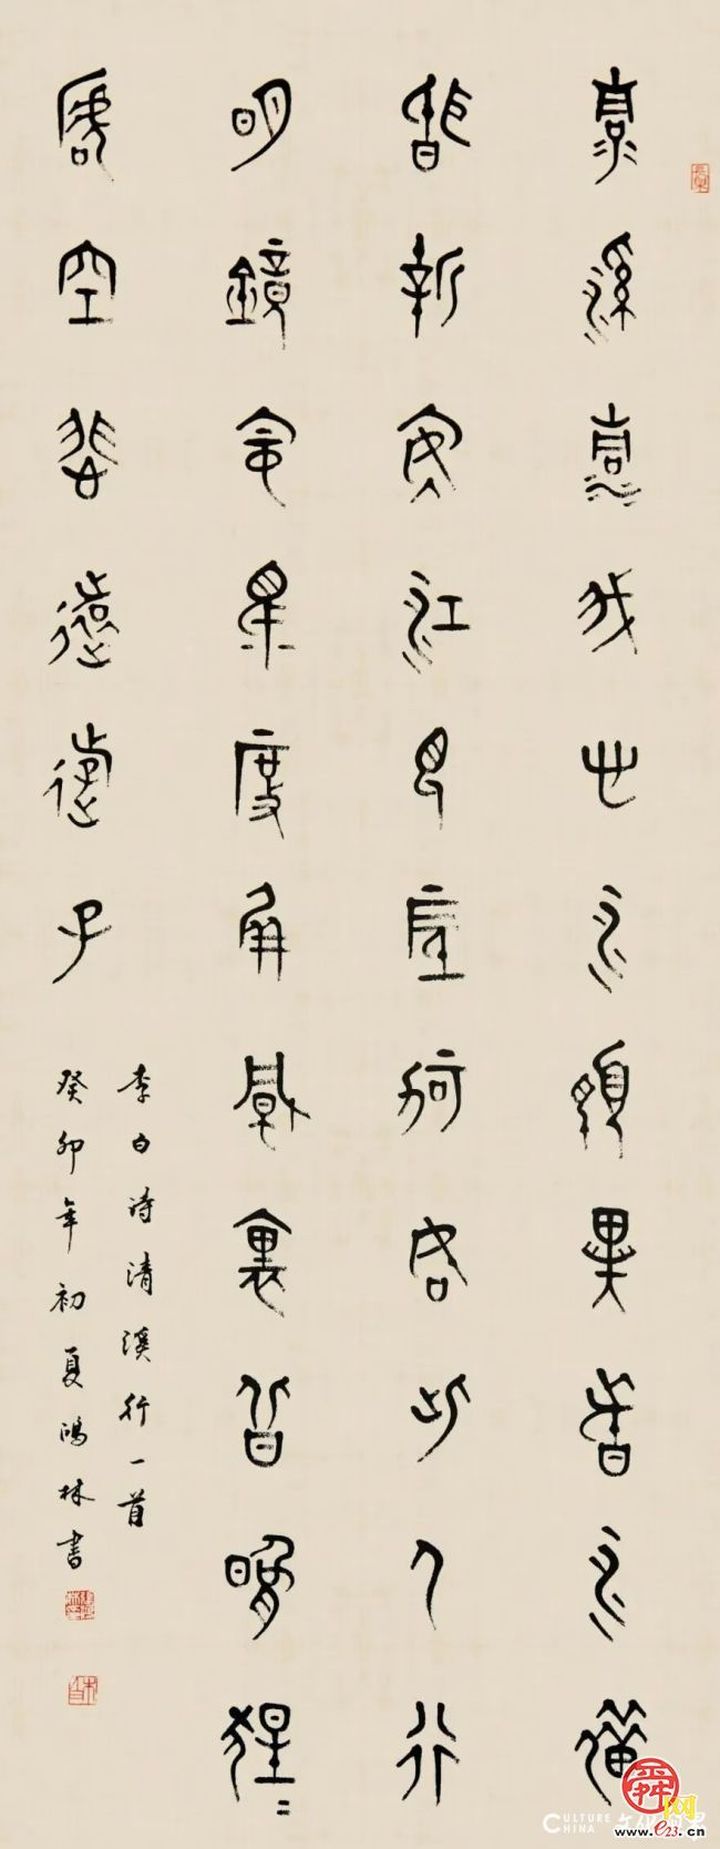 清溪清我心水色異諸水借
問新安江見底何如此人行
明鏡中鳥度屏風裏向晚猩〻
啼空悲遠遊子
李白詩清溪行一首
癸卯年初夏鴻林書
CULTURE CHINA
舜网
www.e23.cn